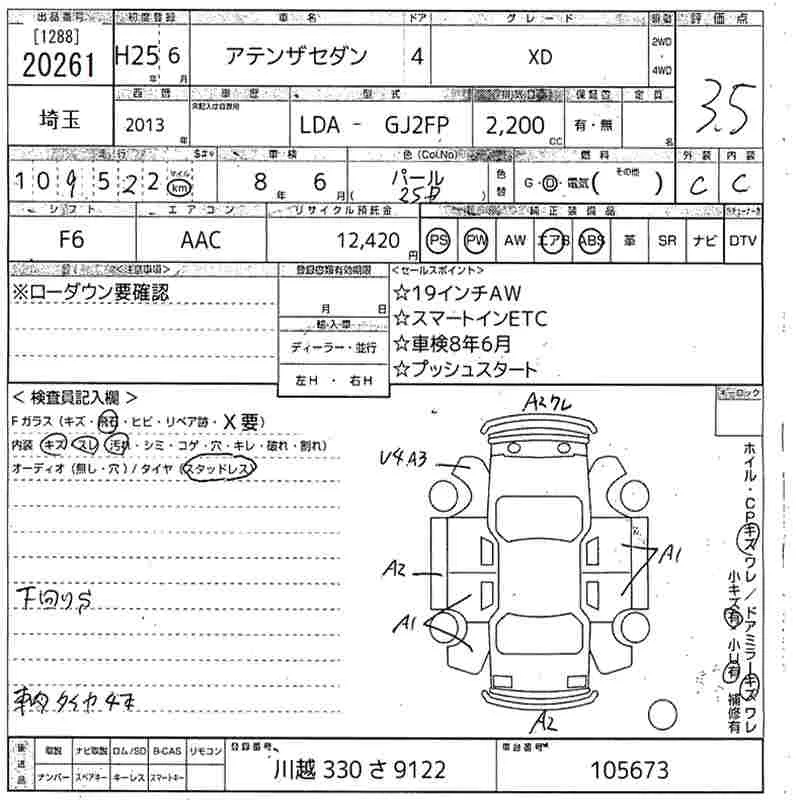 出品番号 初度登録 車名 ドア グレード 駆動 評価点
[1288]
20261 H25年 6月 アテンザセダン 4 XD 2WD・4WD 3.5
埼玉 西暦 車歴 型式 排気量 保証書 定員
2013年 LDA - GJ2FP 2,200CC 有・無 名
走行 S#キ 車・検 色(Col.No) 燃料 外装 内装
109522 マイル km 8年 6月 パール (25D) 色替 G・D・電気( その他 ) C C
シフト エアコン リサイクル預託金 純正装備品
F6 AAC 12,420円 PS PW AW エアB ABS 革 SR ナビ DTV
<注意事項> 登録書類有効期限 <セールスポイント>
※ローダウン要確認 月 日 ☆19インチAW
輸・入・車 ☆スマートインETC
ディーラー・並行 ☆車検8年6月
左H・右H ☆プッシュスタート
<検査員記入欄>
Fガラス(キズ・飛石・ヒビ・リペア跡・X要)
内装(キズ・スレ・汚れ・シミ・コゲ・穴・キレ・破れ・割れ)
オーディオ(無し・穴)/タイヤ(スタッドレス)
A2ワレ
U4.A3
A2
A1
A1
A2
下回りS
車内タイヤ4本
ホイル・CPキズワレ/ドアミラーキズワレ
小キズ有・小U有 補修有
後送品 取説 ナビ取説 ロム/SD B-CAS リモコン 登録番号 車台番号
ナンバー スペアキー キーレス スマートキー 川越 330 さ 9122 105673